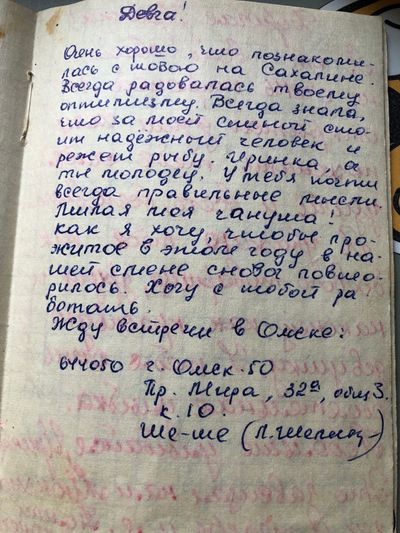 Девча!
Очень хорошо, что познакоми-
лась с тобою на Сахалине.
Всегда радовалась твоему
оптимизму. Всегда знала,
что за моей спиной сто-
ит надёжный человек и
режет рыбу. Иринка, а
ты молодец. У тебя почти
всегда правильные мысли.
Милая моя
как я хочу, чтобы про-
житое в этом году в на-
шей смене снова повто-
рилось. Хочу с тобой ра
ботать.
Жду встречи в Омске:
644050 г. Омск-50
Пр. Мира, 32а, общ 3.
к. 10
Ше-ше